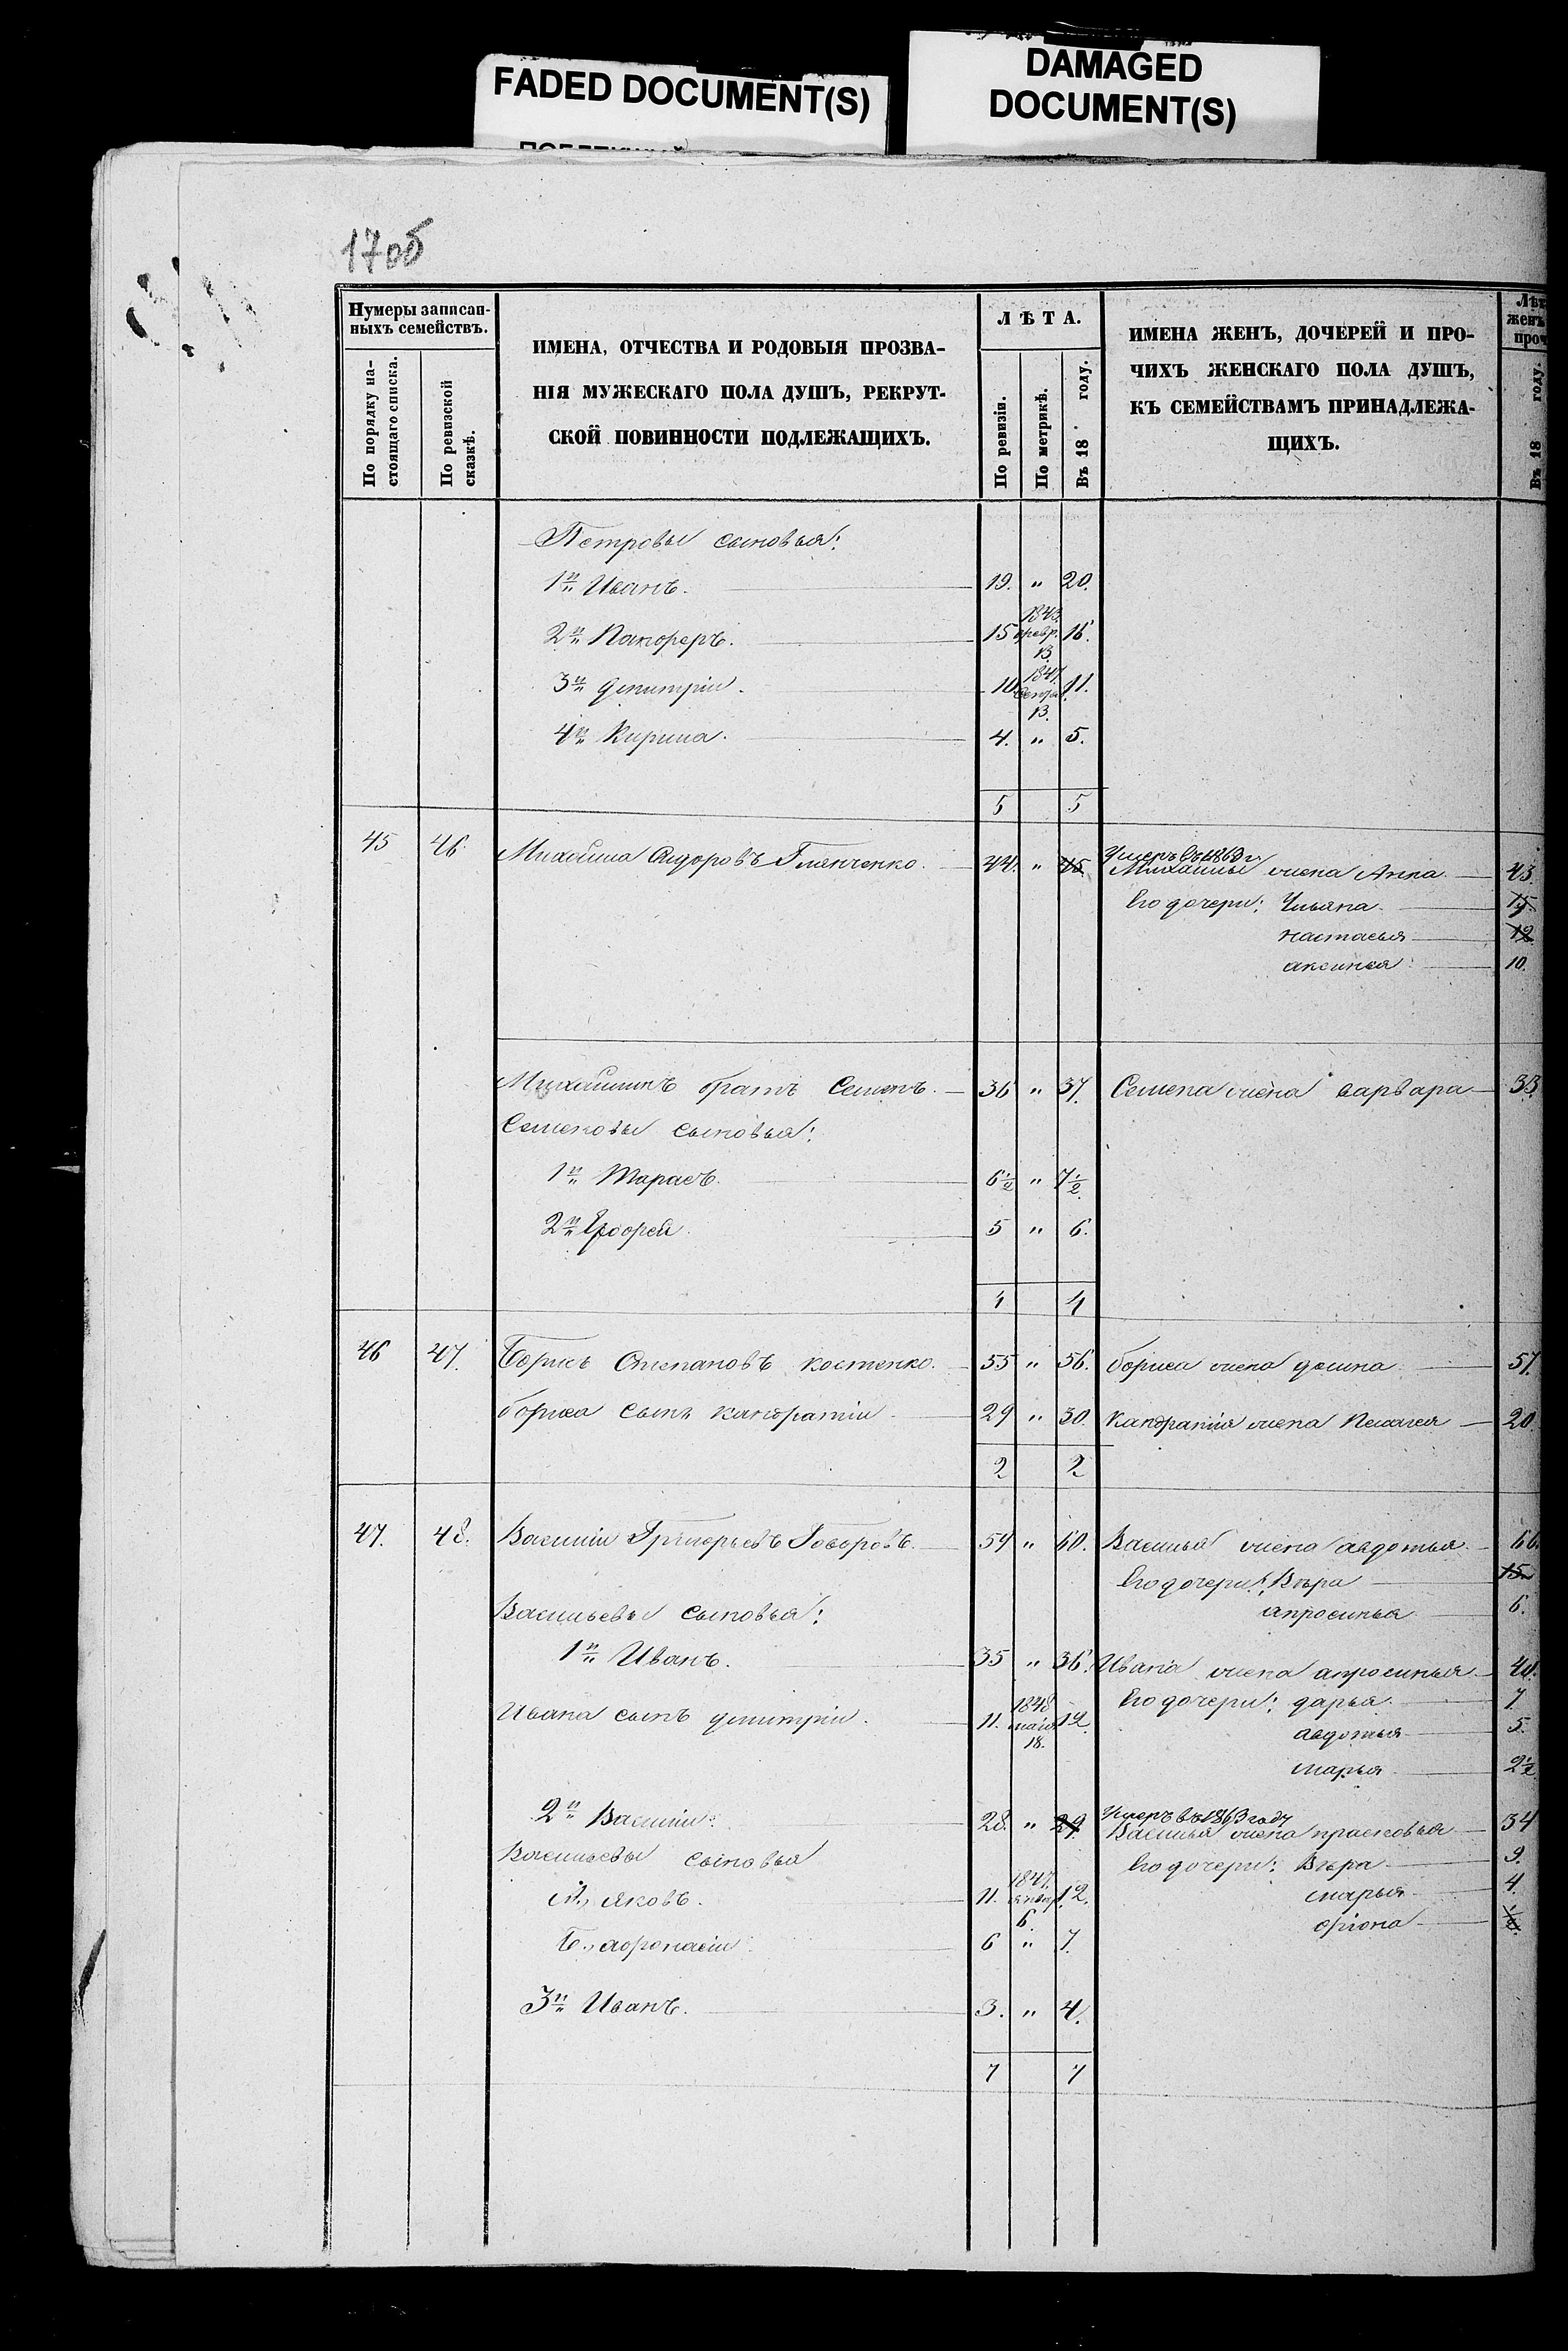 FADED DOCUMENT(S)
DAMAGED
DOCUMENT(S)
17об
Нумеры записан-
ныхъ семействъ.
По порядку на-
стоящаго списка.
По ревизской
сказкѣ.
ИМЕНА, ОТЧЕСТВА И РОДОВЫЯ ПРОЗВА-
НІЯ МУЖЕСКАГО ПОЛА ДУШЪ, РЕКРУТ-
СКОЙ ПОВИННОСТИ ПОДЛЕЖАЩИХЪ.
ЛѢТА.
По ревизіи.
По метрикѣ.
Въ 18 году.
ИМЕНА ЖЕНЪ, ДОЧЕРЕЙ И ПРО-
ЧИХЪ ЖЕНСКАГО ПОЛА ДУШЪ,
КЪ СЕМЕЙСТВАМЪ ПРИНАДЛЕЖА-
ЩИХЪ.
Лѣт
женъ
проч
Въ 18 году.
Петровы сыновья:
1й Иванъ. 19. " 20.
2й Панферъ. 15 1843. февр. 13 16.
3й дмитріи. 10 1847 13. 11.
4й Кирила. 4. " 5.
5 5
45 46. Михайла Сидоровъ 44. " 45 Умеръ въ 1869 г.
Михайлы жена Анна 43.
Его дочери: Ульяна 15
настасья 12
аксинья 10.
Михайлинъ братъ Семенъ. 36 " 37. Семена жена варвара 33.
Семеновы сыновья:
1й Тарасъ. 6½ " 7½
2й 5 " 6.
4 4
46 47. Борисъ Степановъ костенко. 55 " 56. бориса жена домна 57.
бориса сынъ кандратіи 29 " 30. Кандратія жена Пелагея 20.
2 2
47. 48. Василіи Григорьевъ Говоровъ. 59 " 60. Василья жена авдотья 66.
Его дочери: Вѣра 15
апросинья 6.
Васильевы сыновья:
1й Иванъ. 35 " 36. Ивана жена апросинья 40.
Ивана сынъ дмитріи. 11. 1848 маія 18. 12. Его дочери: дарья 7
авдотья 5.
марья 2½
2й Василіи. 28. " 29. Умеръ въ 1863 году
Василья жена прасковья 34
Васильевы сыновья Его дочери: Вѣра 9.
А., яковъ. 11. 1847. январ. 6. 12. марья 4.
Б., афонасіи 6 " 7.
3й Иванъ. 3. " 4.
7 7